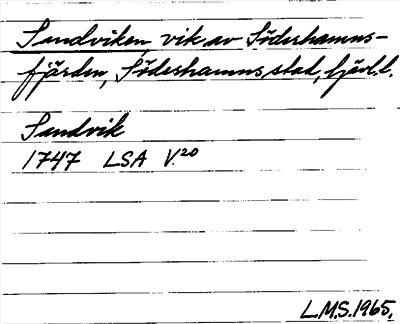 Sandviken, vik av Söderhamns-
fjärden, Söderhamns stad, Gävl. l.
Sandvik
1747 LSA V²⁰
L.M.S. 1965.